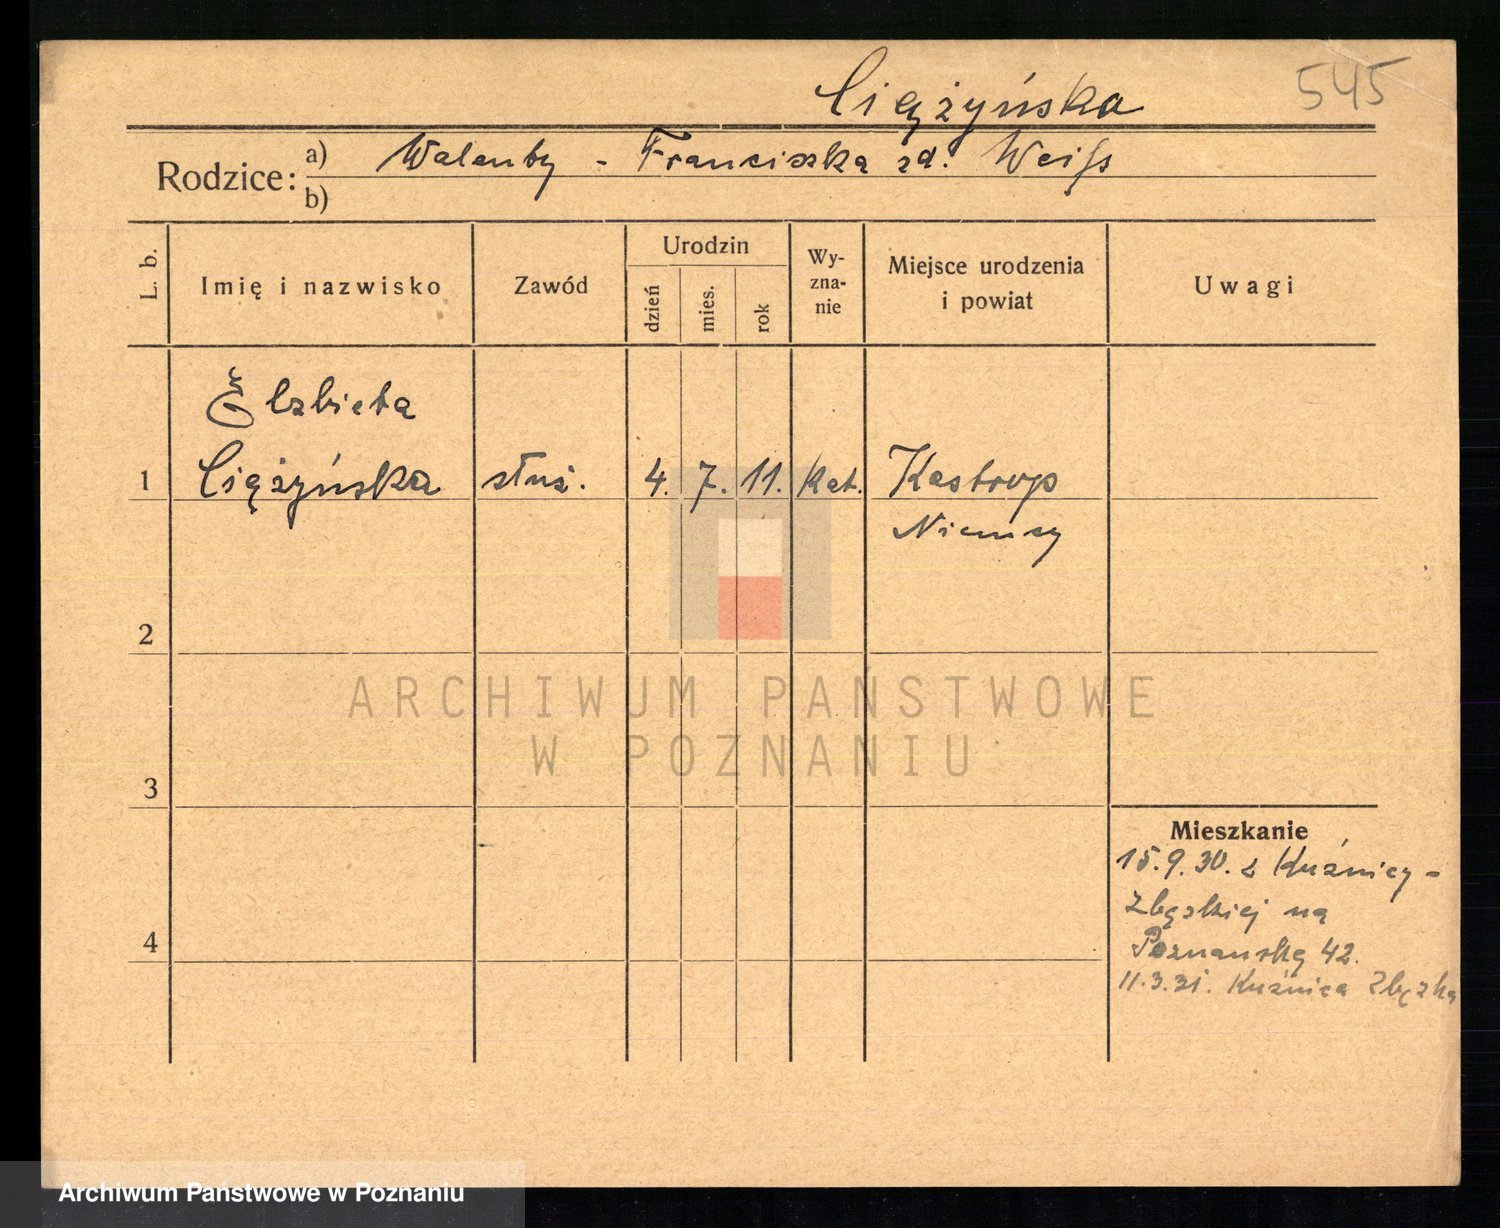 545
Ciężyńska
Rodzice: a) Walenty - Franciszka zd. Weiss
b)
L. b. Imię i nazwisko Zawód Urodzin dzień mies. rok Wy-zna-nie Miejsce urodzenia i powiat Uwagi
Elzbieta
1 Ciężyńska służ. 4. 7. 11. kat. Kastrop
Niemcy
2
ARCHIWUM PAŃSTWOWE
W POZNANIU
3
Mieszkanie
15.9.30. z Kuźnicy-
Zbąskiej na
Poznanską 42.
4
11.3.31. Kuźnica Zbąska
Archiwum Państwowe w Poznaniu